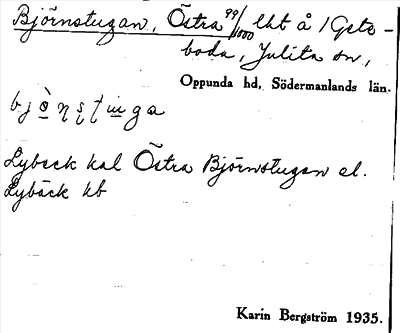 Björnstugan, Östra 99/1000 lht å 1 Geta-
boda, Julita sn,
Oppunda hd, Södermanlands län.
Lybeck kal Östra Björnstugan el.
Lybäck kb
Karin Bergström 1935.